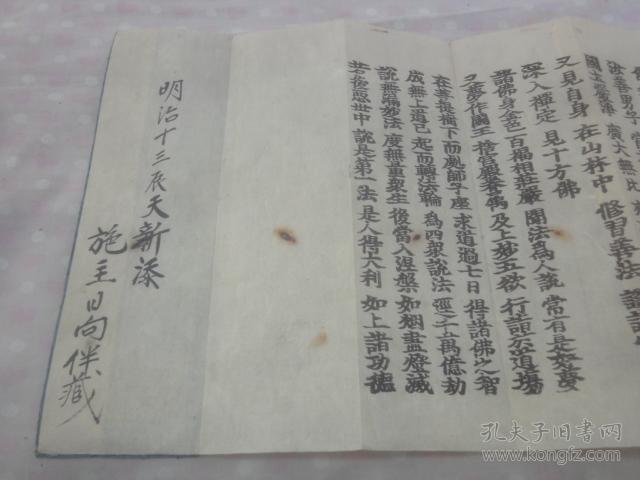 又見自身 在山林中 修習善法
深入禪定 見十方佛
諸佛身金色 百福相莊嚴 聞法為人說 常有是好夢
又夢作國王 捨宮殿眷屬 及上妙五欲 行詣於道場
在菩提樹下 而處師子座 求道過七日 得諸佛之智
成無上道已 起而轉法輪 為四衆說法 逕千万億劫
說無漏妙法 度無量衆生 後當入涅槃 如烟盡燈滅
若後惡世中 說是第一法 是人得大利 如上諸功德
明治十三辰天新添
施主日向
孔夫子旧书网
www.kongfz.com